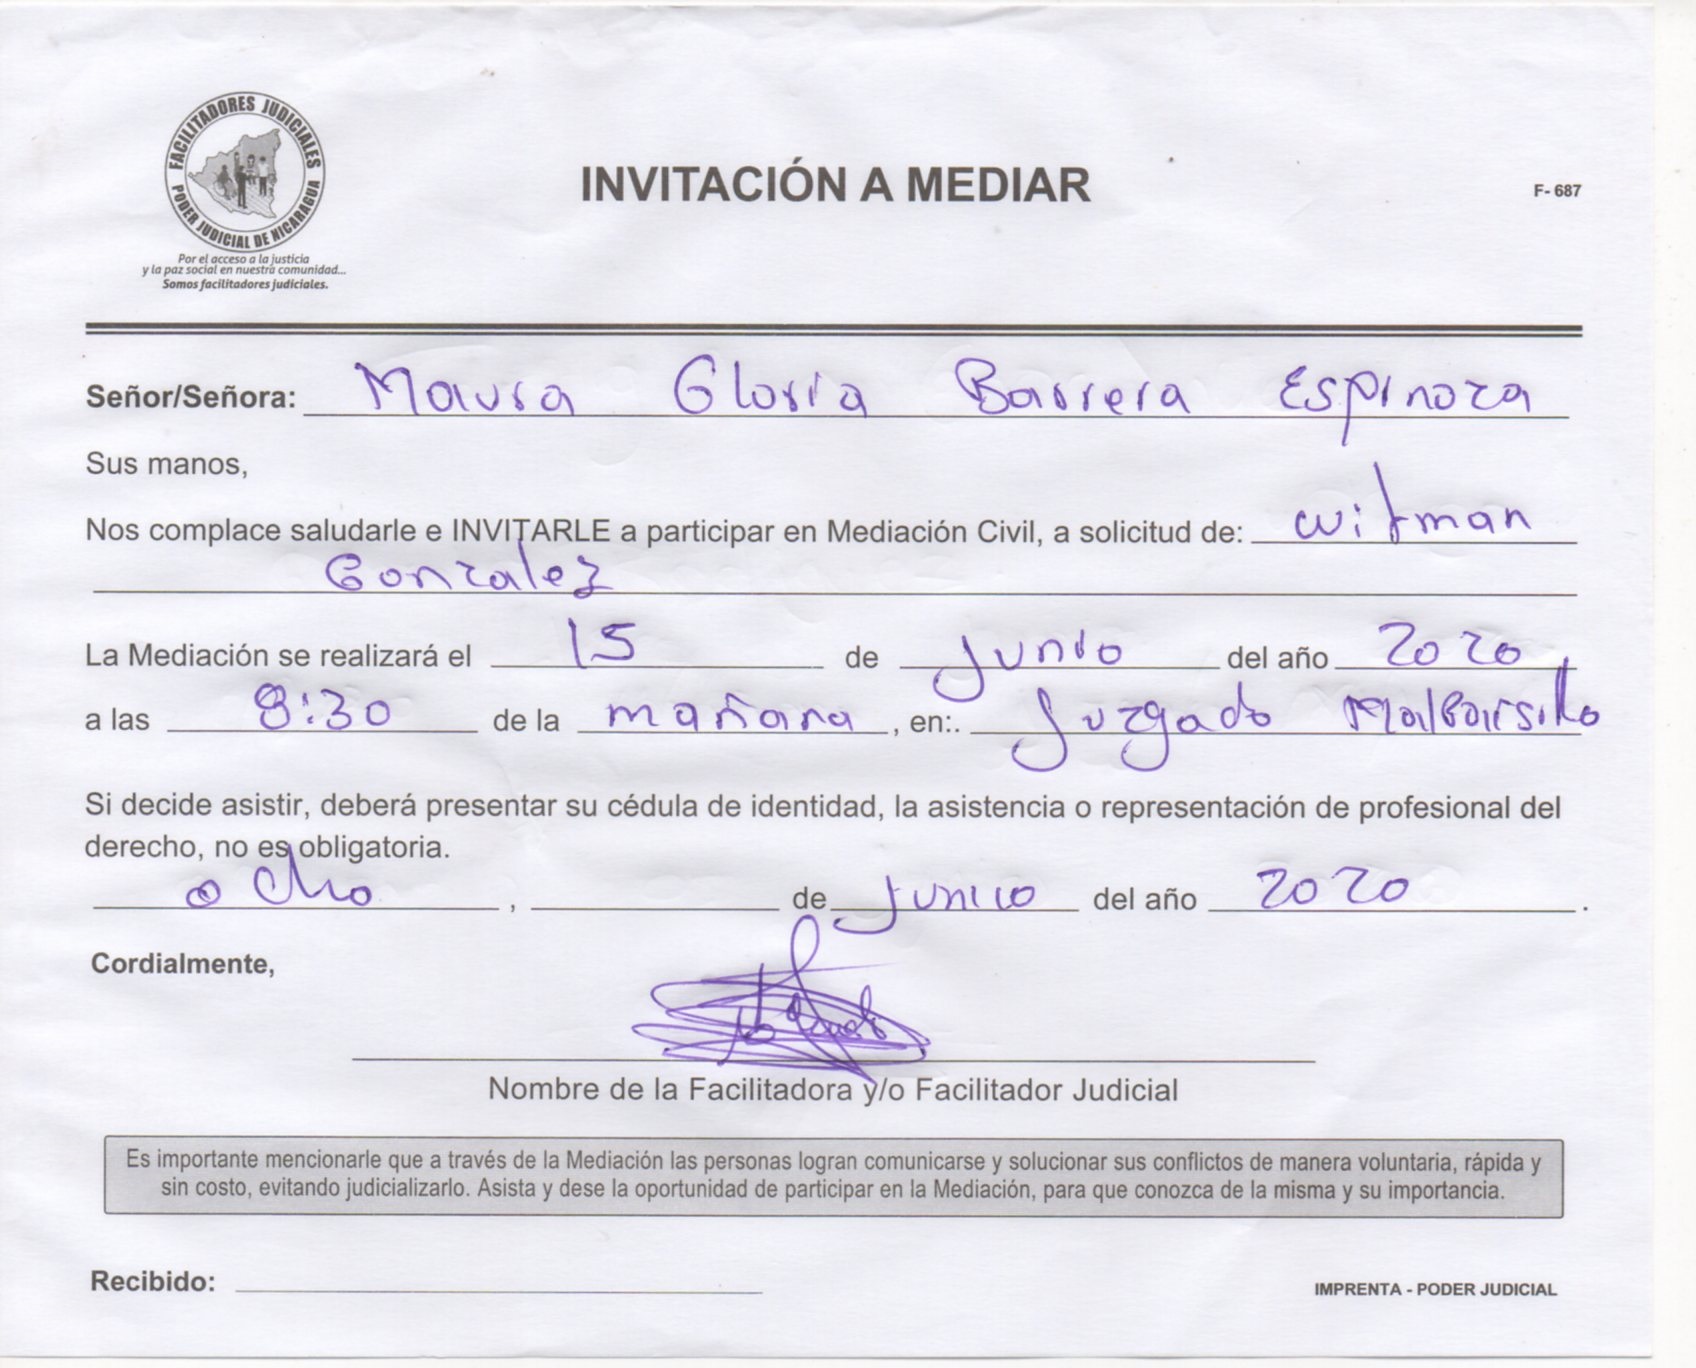 FACILITADORES JUDICIALES
PODER JUDICIAL DE NICARAGUA
Por el acceso a la justicia
y la paz social en nuestra comunidad...
Somos facilitadores judiciales.
INVITACIÓN A MEDIAR
F- 687
Señor/Señora: Maura Gloria Barrera Espinoza
Sus manos,
Nos complace saludarle e INVITARLE a participar en Mediación Civil, a solicitud de: witman
Gonzalez
La Mediación se realizará el 15 de Junio del año 2020
a las 8:30 de la mañana, en:. Juzgado
Si decide asistir, deberá presentar su cédula de identidad, la asistencia o representación de profesional del
derecho, no es obligatoria.
ocho , de Junio del año 2020.
Cordialmente,
Nombre de la Facilitadora y/o Facilitador Judicial
Es importante mencionarle que a través de la Mediación las personas logran comunicarse y solucionar sus conflictos de manera voluntaria, rápida y
sin costo, evitando judicializarlo. Asista y dese la oportunidad de participar en la Mediación, para que conozca de la misma y su importancia.
Recibido:
IMPRENTA - PODER JUDICIAL